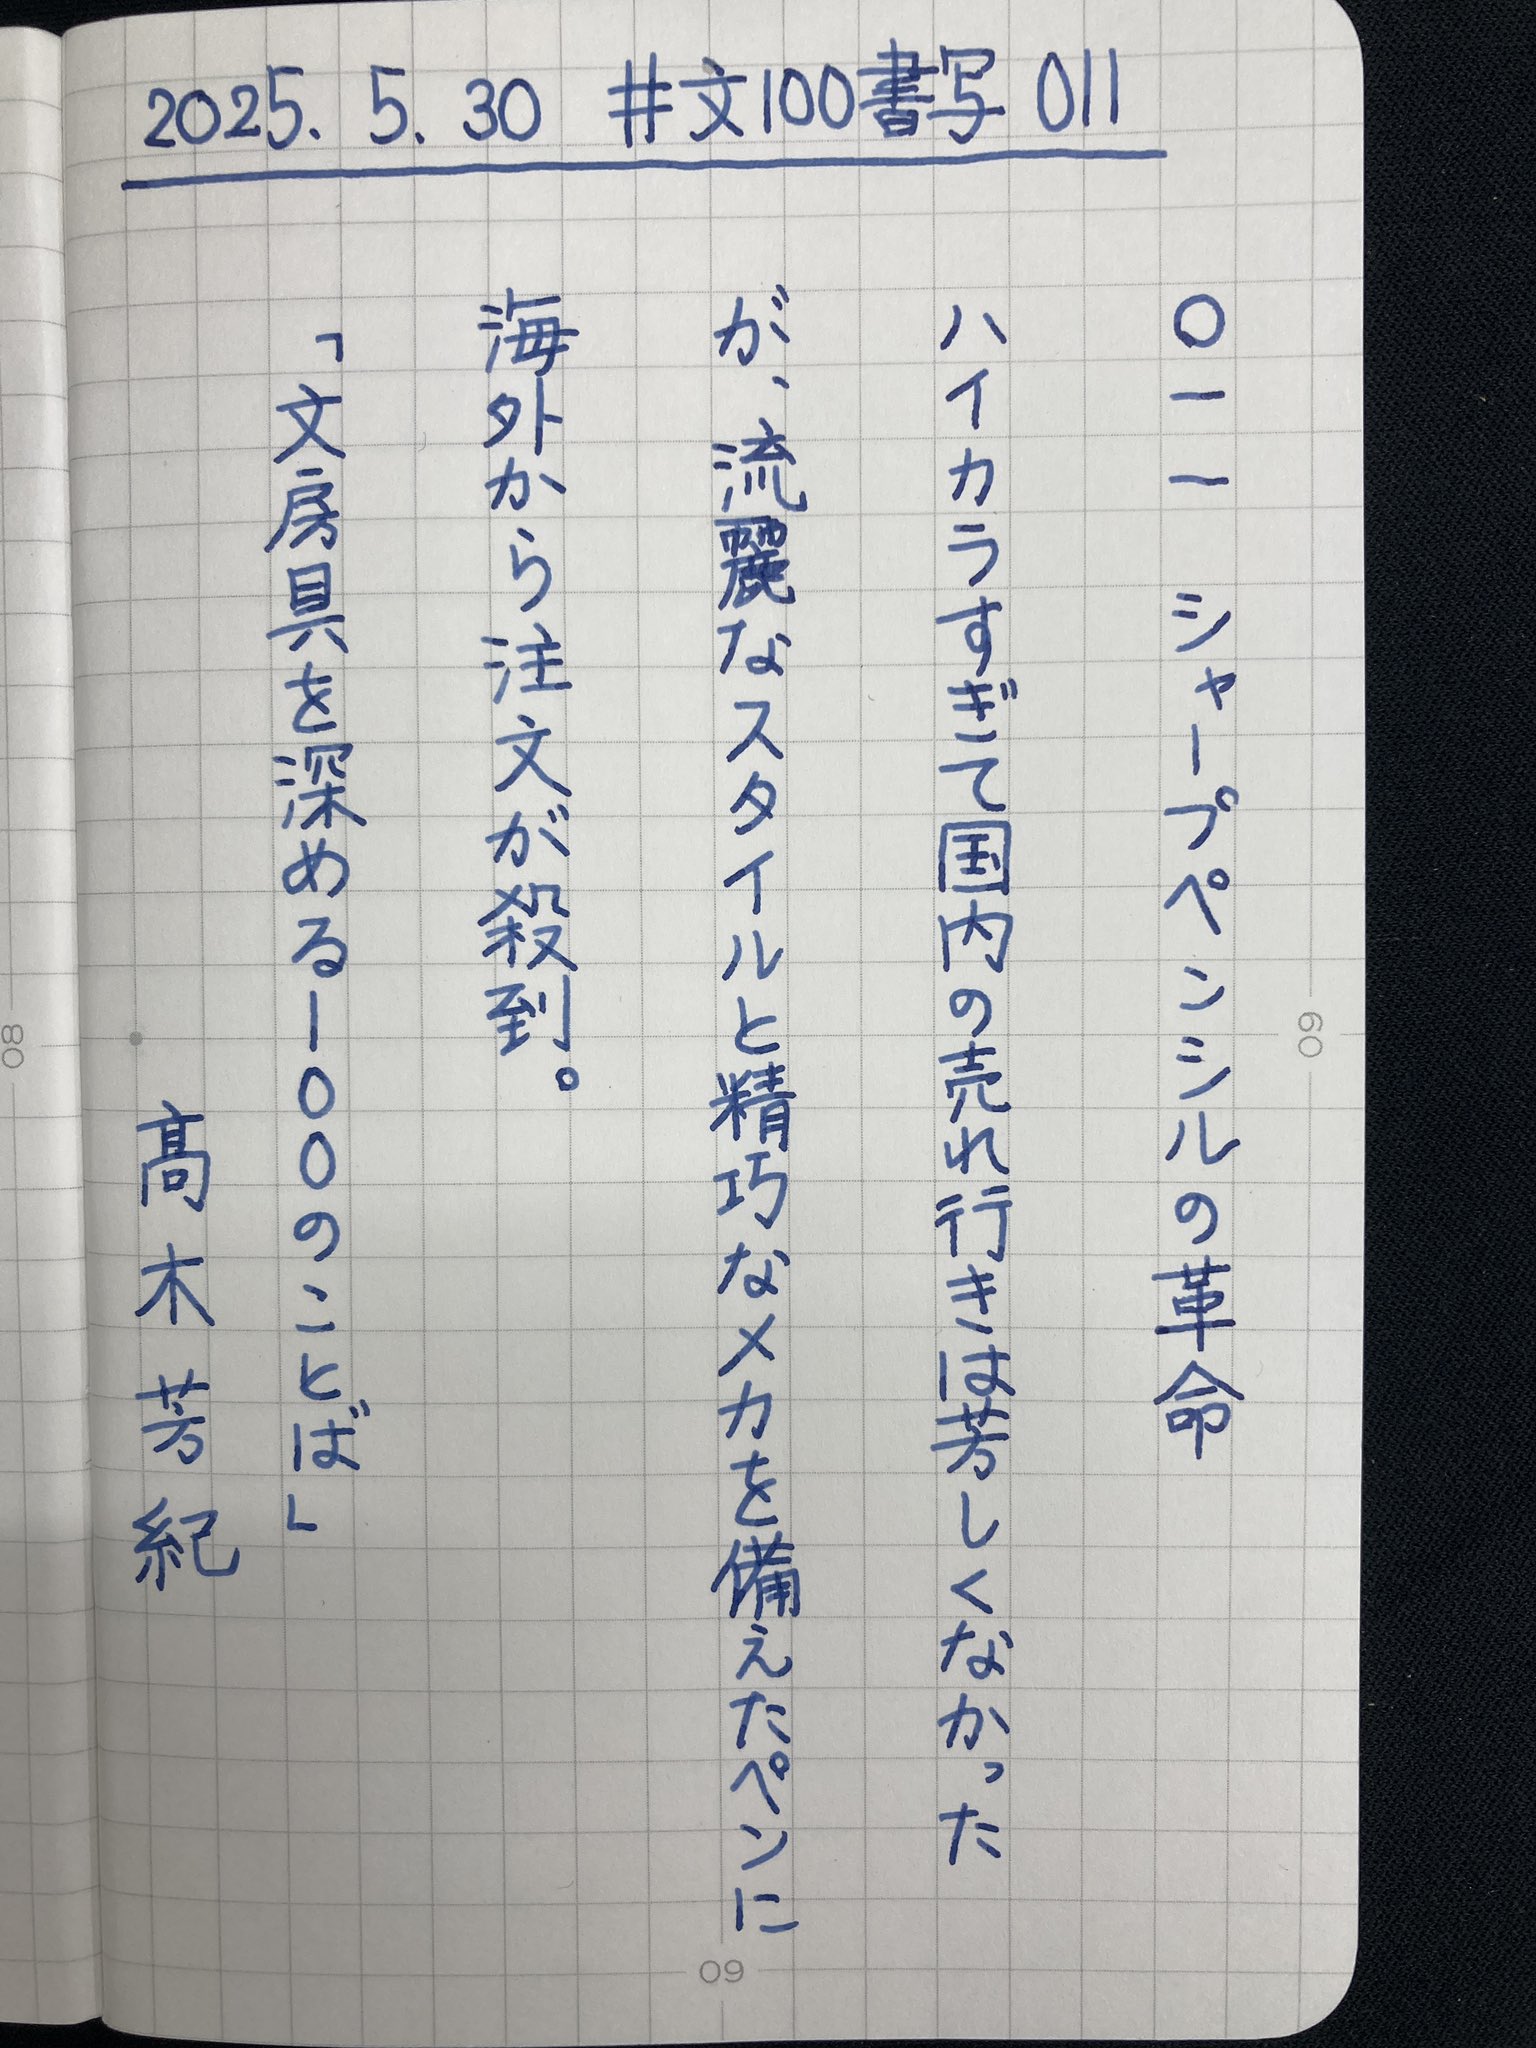 2025. 5. 30 #文100書写 011
〇一一 シャープペンシルの革命
ハイカラすぎて国内の売れ行きは芳しくなかった
が、流麗なスタイルと精巧なメカを備えたペンに
海外から注文が殺到。
「文房具を深める一〇〇のことば」
髙木芳紀
09
09
08